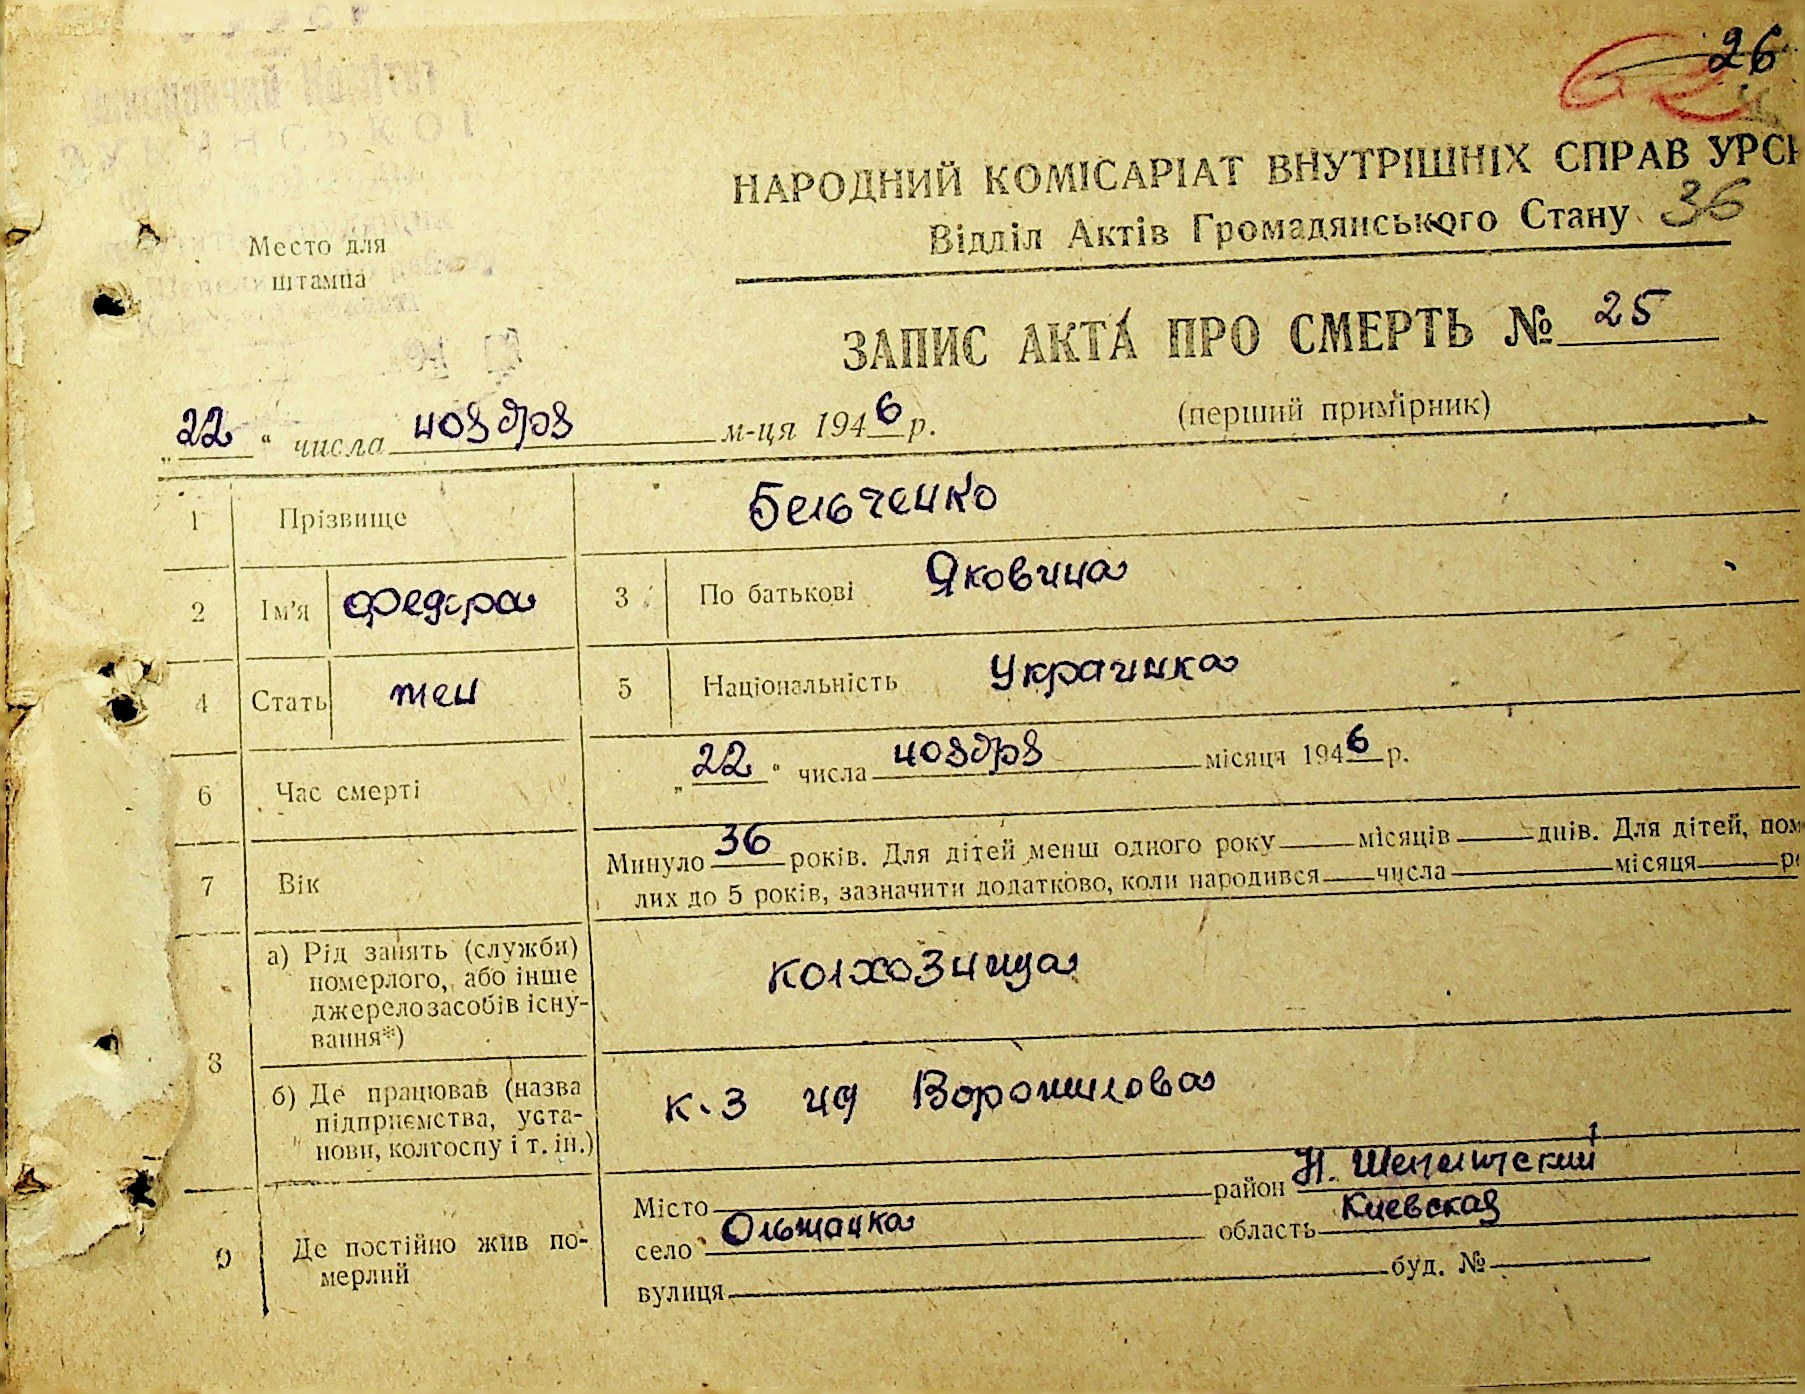 26
62
НАРОДНИЙ КОМІСАРІАТ ВНУТРІШНІХ СПРАВ УРСР
Відділ Актів Громадянського Стану 36
Место для
штампа
ЗАПИС АКТА ПРО СМЕРТЬ № 25
„22“ числа ноября м-ця 1946 р. (перший примірник)
1 Прізвище Бельченко
2 Ім'я Федора 3 По батькові Яковина
4 Стать жен 5 Національність Украинка
6 Час смерті „22“ числа ноября місяця 1946 р.
7 Вік Минуло 36 років. Для дітей менш одного року місяців днів. Для дітей, пом
лих до 5 років, зазначити додатково, коли народився числа місяця р
8 а) Рід занять (служби)
померлого, або інше
джерело засобів існу-
вання*) колхозница
б) Де працював (назва
підприємства, уста-
нови, колгоспу і т. ін.) к-з им Ворошилова
9 Де постійно жив по-
мерлий
Місто район Н. Шепеличский
село Ольшанка область Киевская
вулиця буд. №